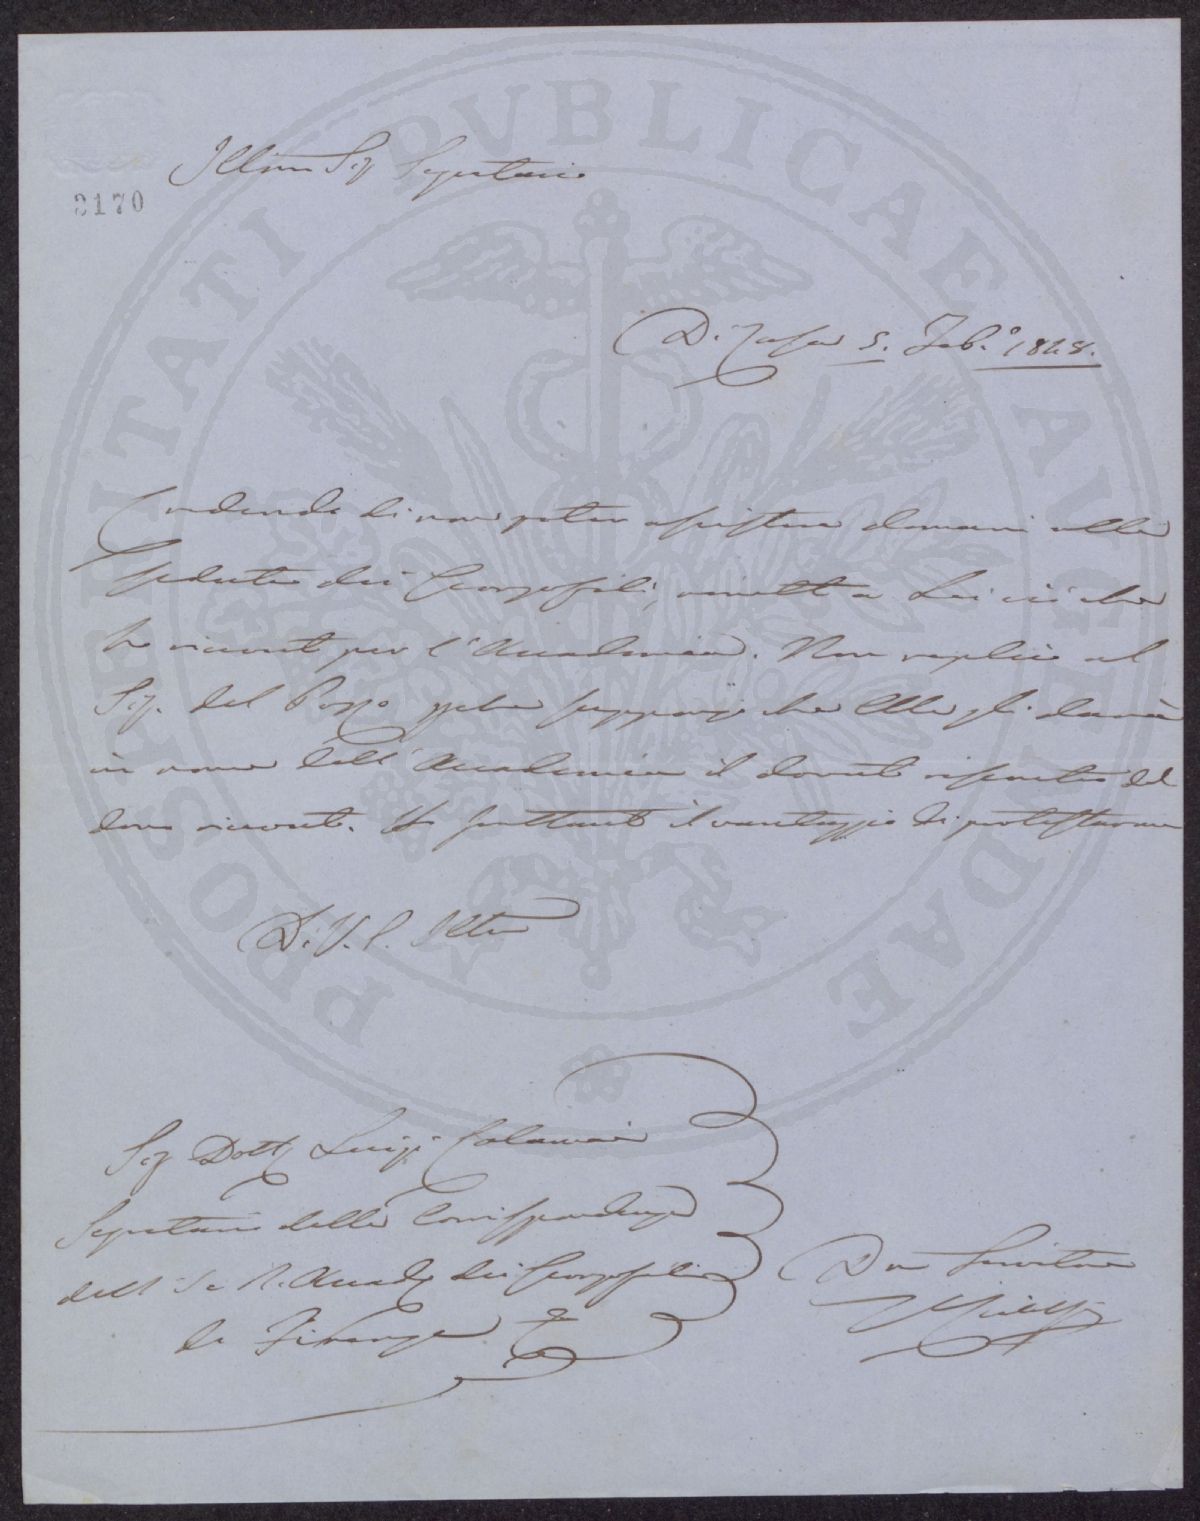 PROSPERITATI PVBLICAE AVGENDAE
3170
Illmo Sig Segretario
Di Casa 5. Feb.o 1828.
Credendo di non poter assistere domani alla
seduta dei Georgofili, rimetto a Lei ciò che
ho ricevuto per l'Accademia. Non replico al
Sig. del Pozzo perche suppongo che Ella gli darà
in nome dell'Accademia il dovuto riscontro del
dono ricevuto. Ho frattanto il vantaggio di protestarmi
Di V. S. Illma
Sig Dott Luigi Calamai
Segretario della Corrispondenza
dell' I. e R. Accad dei Georgofili
di Firenze
Dev Servitore